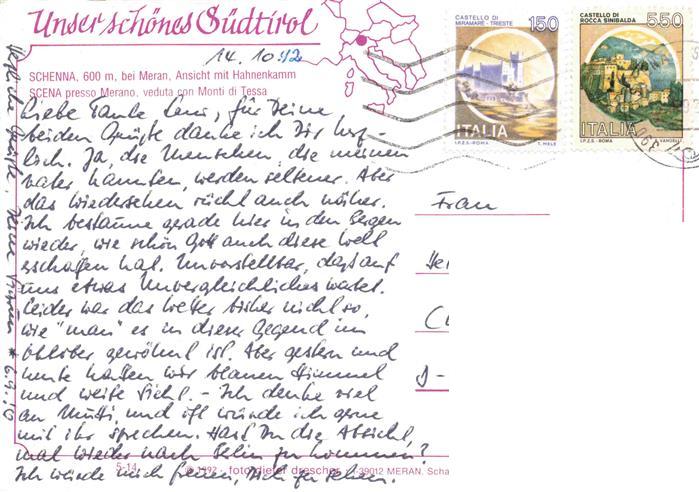 Unser schönes Südtirol
14. 10. 92
SCHENNA, 600 m, bei Meran, Ansicht mit Hahnenkamm
SCENA presso Merano, veduta con Monti di Tessa
Liebe Tante für Deine
beiden Grüße danke ich Dir herz-
lich. Ja, die Menschen, die meinen
Vater kannten, werden seltener. Aber
das Wiedersehen rückt auch näher.
Ich bestaune gerade hier in den Bergen
wieder, wie schön Gott auch diese Welt
erschaffen hat. Unvorstellbar, daß auf
uns etwas Unvergleichliches wartet.
Leider war das Wetter bisher nicht so,
wie "man" es in dieser Gegend im
Oktober gewöhnt ist. Aber gestern und
heute hatten wir blauen Himmel
und weite Sicht. - Ich denke viel
an Mutti, und oft würde ich gerne
mit ihr sprechen. Hast Du die Absicht,
mal wieder nach Berlin zu kommen?
Ich würde mich freuen, Dich zu sehen.
Herzliche Grüße, Deine
* 6.9.10
5-14
© 1992 - foto dieter drescher - I-39012 MERAN, Scha
CASTELLO DI
MIRAMARE - TRIESTE
150
ITALIA
I.P.Z.S.-ROMA T. MELE
CASTELLO DI
ROCCA SINIBALDA
550
ITALIA
I.P.Z.S. - ROMA VANGELLI
Frau
D-